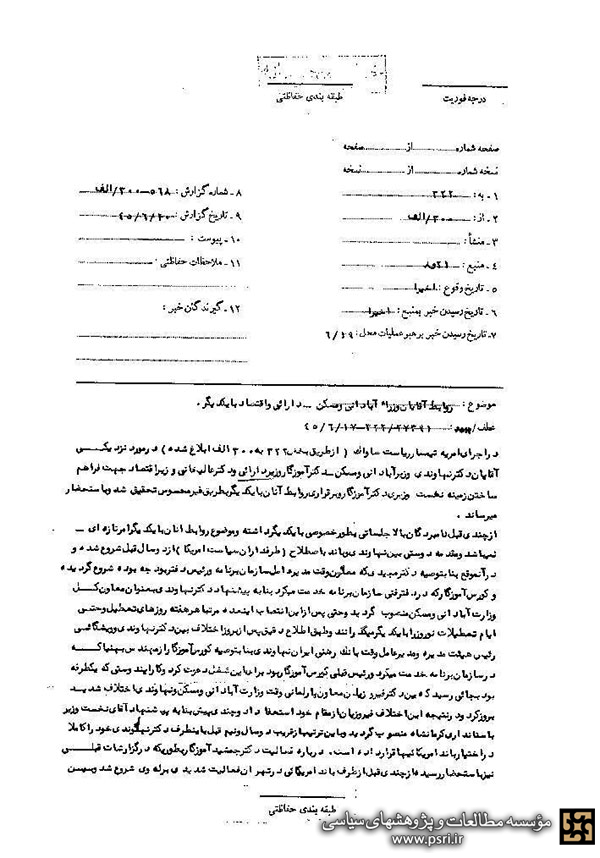 طبقه بندی حفاظتی
درجه فوریت
صفحه شماره از صفحه
نسخه شماره از نسخه
۱ - به : ۳۲۲
۲ - از : ۳۰۰/الف
۳ - منشأ :
۴ - منبع :
۵ - تاریخ وقوع : اخیرا
۶ - تاریخ رسیدن خبر بمنبع : اخیرا
۷ - تاریخ رسیدن خبر برهبر عملیات محل : ۶/۱۹
۸ - شماره گزارش : ۵۶۸-۳۰۰/الف
۹ - تاریخ گزارش : ۴۵/۶/۲۰
۱۰ - پیوست :
۱۱ - ملاحظات حفاظتی :
۱۲ - گیرندگان خبر :
موضوع : روابط آقایان وزراء آبادانی ومسکن - دارائی واقتصاد بایکدیگر.
عطف/ ۲۷۳۹۱-۳۲۲-۴۵/۶/۱۷
در اجرای امریه تیمسار ریاست ساواک ( از طریق بخش ۳۲۲ به ۳۰۰ الف ابلاغ شده ) در مورد نزدیکی
آقایان دکتر نهاوندی وزیر آبادانی ومسکن - دکتر آموزگار وزیر دارائی ودکتر عالیخانی وزیر اقتصاد جهت فراهم
ساختن زمینه نخست وزیری دکتر آموزگار وبرقراری روابط آنان بایکدیگر بطریق غیر محسوس تحقیق شد وباستحضار
میرساند .
از چندی قبل نامبردگان بالا جلساتی بطور خصوصی بایکدیگر داشته وموضوع روابط آنان بایکدیگر امر تازه ای
نمیباشد ومقدمه دوستی بین نهاوندی وباند باصطلاح ( طرفداران سیاست امریکا ) از دوسال قبل شروع شده و
در آنموقع بنا بتوصیه دکتر مجیدی که معاون وقت مدیرعامل سازمان برنامه ورئیس دفتر بودجه بوده شروع گردیده
و کورس آموزگار که در دفتر فنی سازمان برنامه خدمت میکرد بنا به پیشنهاد دکتر نهاوندی بعنوان معاون کل
وزارت آبادانی ومسکن منصوب گردید وحتی پس از این انتصاب اینعده مرتبا هر هفته روزهای تعطیل وحتی
ایام تعطیلات نوروز را بایکدیگر میگذرانند وطبق اطلاع دقیق پس از بروز اختلاف بین دکتر نهاوندی و
رئیس هیئت مدیره ومدیرعامل وقت بانک رهنی ایران نهاوندی بنا بتوصیه کورس آموزگار از مهندس بهنیا که
در سازمان برنامه خدمت میکرد ورئیس قبلی کورس آموزگار بود برای این شغل دعوت کرد وکار این دوستی که یکطرفه
بود بجائی رسید که بین دکتر فیروزیان معاون پارلمانی وقت وزارت آبادانی ومسکن ونهاوندی اختلاف شدید
بروز کرد ودر نتیجه این اختلاف فیروزیان از مقام خود استعفا داد وچندی پیش بنا به پیشنهاد آقای نخست وزیر
باستانداری کرمانشاه منصوب گردید وباین ترتیب از قریب دوسال ونیم قبل باینطرف دکتر نهاوندی خود را کاملا
در اختیار باند امریکائیها قرار داده است . در باره فعالیت دکتر جمشید آموزگار بطوریکه در گزارشات قبلی
نیز باستحضار رسیده از چندی قبل از طرف باند امریکائی در تهران فعالیت شدیدی برله وی شروع شد وسپس
طبقه بندی حفاظتی
مؤسسه مطالعات و پژوهشهای سیاسی
www.psri.ir